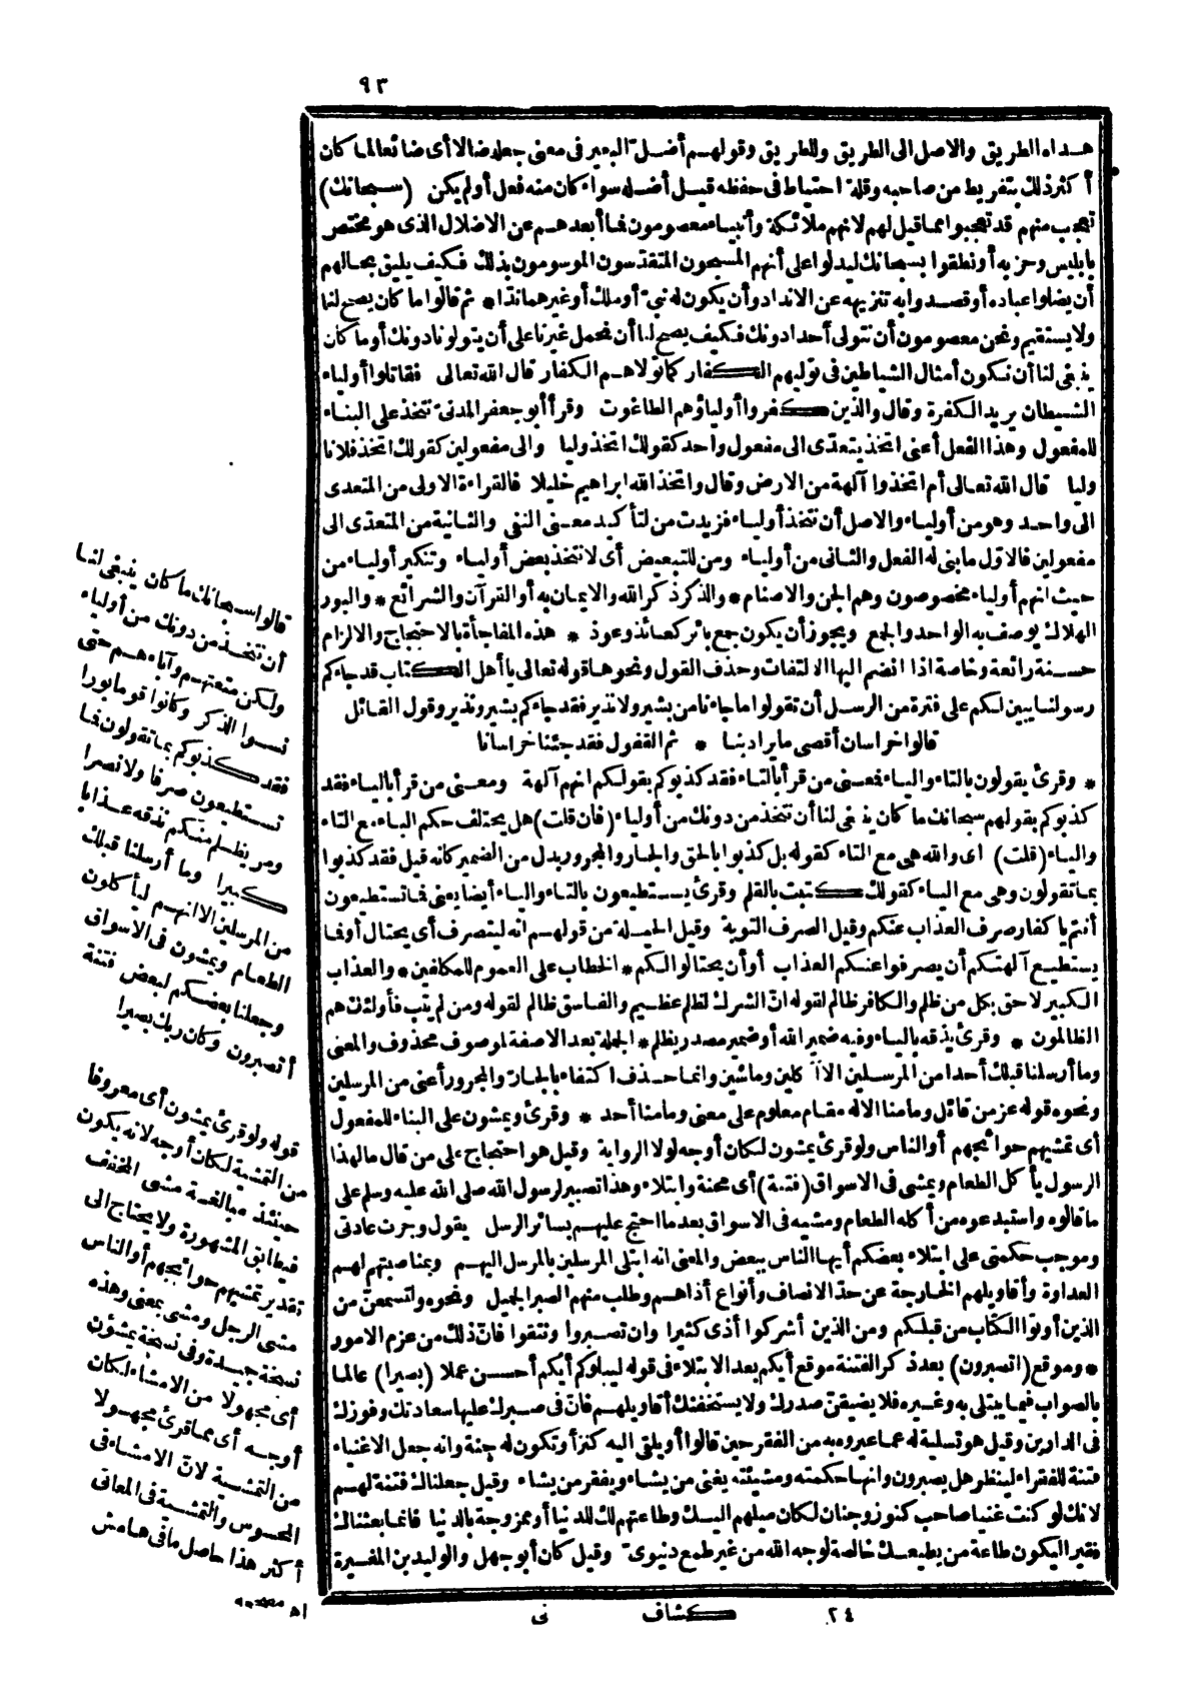 ٩٣
هداه الطريق والاصل الى الطريق وللطريق وقولهم أضلّ البعير فى معنى جعله ضالا أى ضائعا لما كان
أكثر ذلك بتفريط من صاحبه وقلة احتياط فى حفظه قيل أضله سواء كان منه فعل أو لم يكن (سبحانك)
تعجب منهم قد تعجبوا مما قيل لهم لانهم ملائكة وأنبياء معصومون فما أبعدهم عن الاضلال الذى هو مختص
بابليس وحزبه أو نطقوا بسبحانك ليدلوا على أنهم المسبحون المتقدّسون الموسومون بذلك فكيف يليق بحالهم
أن يضلوا عباده أو قصدوا به تنزيهه عن الانداد وأن يكون له نبىّ أو ملك أو غيرهما ندّا * ثم قالوا ما كان يصح لنا
ولا يستقيم ونحن معصومون أن نتولى أحدا دونك فكيف يصح لنا أن نحمل غيرنا على أن يتولونا دونك أو ما كان
ينبغى لنا أن نكون أمثال الشياطين فى توليهم الكفار كما تولاهم الكفار قال الله تعالى فقاتلوا أولياء
الشيطان يريد الكفرة وقال والذين كفروا أولياؤهم الطاغوت وقرأ أبو جعفر المدنىّ نتخذ على البناء
للمفعول وهذا الفعل أعنى اتخذ يتعدّى الى مفعول واحد كقولك اتخذ وليا والى مفعولين كقولك اتخذ فلانا
وليا قال الله تعالى أم اتخذوا آلهة من الارض وقال واتخذ الله ابراهيم خليلا فالقراءة الاولى من المتعدى
الى واحد وهو من أولياء والاصل أن نتخذ أولياء فزيدت من لتأكيد معنى النفى والثانية من المتعدّى الى
مفعولين فالاوّل ما بنى له الفعل والثانى من أولياء ومن للتبعيض أى لا نتخذ بعض أولياء وتنكير أولياء من
حيث انهم أولياء مخصوصون وهم الجن والاصنام * والذكر ذكر الله والايمان به أو القرآن والشرائع * والبور
الهلاك يوصف به الواحد والجمع ويجوز أن يكون جمع بائر كعائذ وعوذ * هذه المفاجأة بالاحتجاج والالزام
حسنة رائعة وخاصة اذا انضم اليها الالتفات وحذف القول ونحوها قوله تعالى يا أهل الكتاب قد جاءكم
رسولنا يبين لكم على فترة من الرسل أن تقولوا ما جاءنا من بشير ولا نذير فقد جاءكم بشير ونذير وقول القائل
قالوا خراسان أقصى ما يراد بنا * ثم القفول فقد جئنا خراسانا
* وقرئ يقولون بالتاء والياء فمعنى من قرأ بالتاء فقد كذبوكم بقولكم انهم آلهة ومعنى من قرأ بالياء فقد
كذبوكم بقولهم سبحانك ما كان ينبغى لنا أن نتخذ من دونك من أولياء (فان قلت) هل يختلف حكم الباء مع التاء
والياء (قلت) اى والله هى مع التاء كقوله بل كذبوا بالحق والجار والمجرور بدل من الضمير كانه قيل فقد كذبوا
بما تقولون وهى مع الياء كقولك كتبت بالقلم وقرئ يستطيعون بالتاء والياء أيضا يعنى فما تستطيعون
أنتم يا كفار صرف العذاب عنكم وقيل الصرف التوبة وقيل الحيلة من قولهم انه ليتصرف أى يحتال أو فما
يستطيع آلهتكم أن يصرفوا عنكم العذاب أو أن يحتالوا لكم * الخطاب على العموم للمكلفين * والعذاب
الكبير لاحق بكل من ظلم والكافر ظالم لقوله انّ الشرك لظلم عظيم والفاسق ظالم لقوله ومن لم يتب فأولئك هم
الظالمون * وقرئ يذقه بالياء وفيه ضمير الله أو ضمير مصدر يظلم * الجملة بعد الا صفة لموصوف محذوف والمعنى
وما أرسلنا قبلك أحدا من المرسلين الا آكلين وماشين وانما حذف اكتفاء بالجارّ والمجرور أعنى من المرسلين
ونحوه قوله عز من قائل وما منا الا له مقام معلوم على معنى وما منا أحد * وقرئ ويمشون على البناء للمفعول
أى تمشيهم حوائجهم أو الناس ولو قرئ يمشون لكان أوجه لولا الرواية وقيل هو احتجاج على من قال ما لهذا
الرسول يأكل الطعام ويمشى فى الاسواق (فتنة) أى محنة وابتلاء وهذا تصبير لرسول الله صلى الله عليه وسلم على
ما قالوه واستبدعوه من أكله الطعام ومشيه فى الاسواق بعد ما احتج عليهم بسائر الرسل يقول وجرت عادتى
وموجب حكمتى على ابتلاء بعضكم أيها الناس ببعض والمعنى انه ابتلى المرسلين بالمرسل اليهم وبمناصبتهم لهم
العداوة وأقاويلهم الخارجة عن حدّ الانصاف وأنواع أذاهم وطلب منهم الصبر الجميل ونحوه ولتسمعنّ من
الذين أوتوا الكتاب من قبلكم ومن الذين أشركوا أذى كثيرا وان تصبروا وتتقوا فانّ ذلك من عزم الامور
* وموقع (أتصبرون) بعد ذكر الفتنة موقع أيكم بعد الابتلاء فى قوله ليبلوكم أيكم أحسن عملا (بصيرا) عالما
بالصواب فيما يبتلى به وغيره فلا يضيقنّ صدرك ولا يستخفنك أقاويلهم فانّ فى صبرك عليها سعادتك وفوزك
فى الدارين وقيل هو تسلية له عما عيروه به من الفقر حين قالوا أو يلقى اليه كنز أو تكون له جنة وانه جعل الاغنياء
فتنة للفقراء لينظر هل يصبرون وانها حكمته ومشيئته يغنى من يشاء ويفقر من يشاء وقيل جعلناك فتنة لهم
لانك لو كنت غنيا صاحب كنوز وجنان لكان ميلهم اليك وطاعتهم لك للدنيا أو ممزوجة بالدنيا فانما بعثناك
فقيرا ليكون طاعة من يطيعك خالصة لوجه الله من غير طمع دنيوىّ وقيل كان أبو جهل والوليد بن المغيرة
٢٤ كشاف نى
قالوا سبحانك ما كان ينبغى لنا
أن نتخذ من دونك من أولياء
ولكن متعتهم وآباءهم حتى
نسوا الذكر وكانوا قوما بورا
فقد كذبوكم بما تقولون فما
تستطيعون صرفا ولا نصرا
ومن يظلم منكم نذقه عذابا
كبيرا وما أرسلنا قبلك
من المرسلين الا انهم ليأكلون
الطعام ويمشون فى الاسواق
وجعلنا بعضكم لبعض فتنة
أتصبرون وكان ربك بصيرا
قوله ولو قرئ يمشون أى معروفا
من التمشية لكان أوجه لانه يكون
حينئذ مبالغة مشى المخفف
فيطابق المشهورة ولا يحتاج الى
تقدير تمشيهم حوائجهم أو الناس
مشى الرجل ومشى بمعنى وهذه
نسخة جيدة وفى نسخة يمشون
أى مجهولا من الامشاء لكان
أوجه أى مما قرئ مجهولا
من التمشية لان الامشاء فى
المحسوس والتمشية فى المعانى
أكثر هذا حاصل ما فى هامش
اه